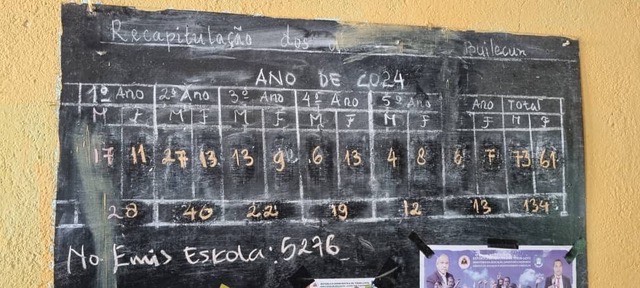 Recapitulação dos
ANO DE 2024
1º Ano 2º Ano 3º Ano 4º Ano 5º Ano Ano Total
M F M F M F M F M F F M F
17 11 27 13 13 9 6 13 4 8 6 7 73 61
28 40 22 19 12 13 134
No Emis Eskola: 5276